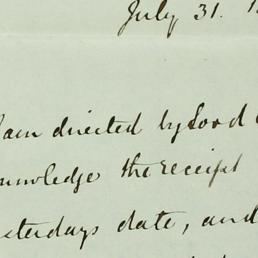 July 31. 1
am directed by Lord
knowledge the receipt
esterdays date, and